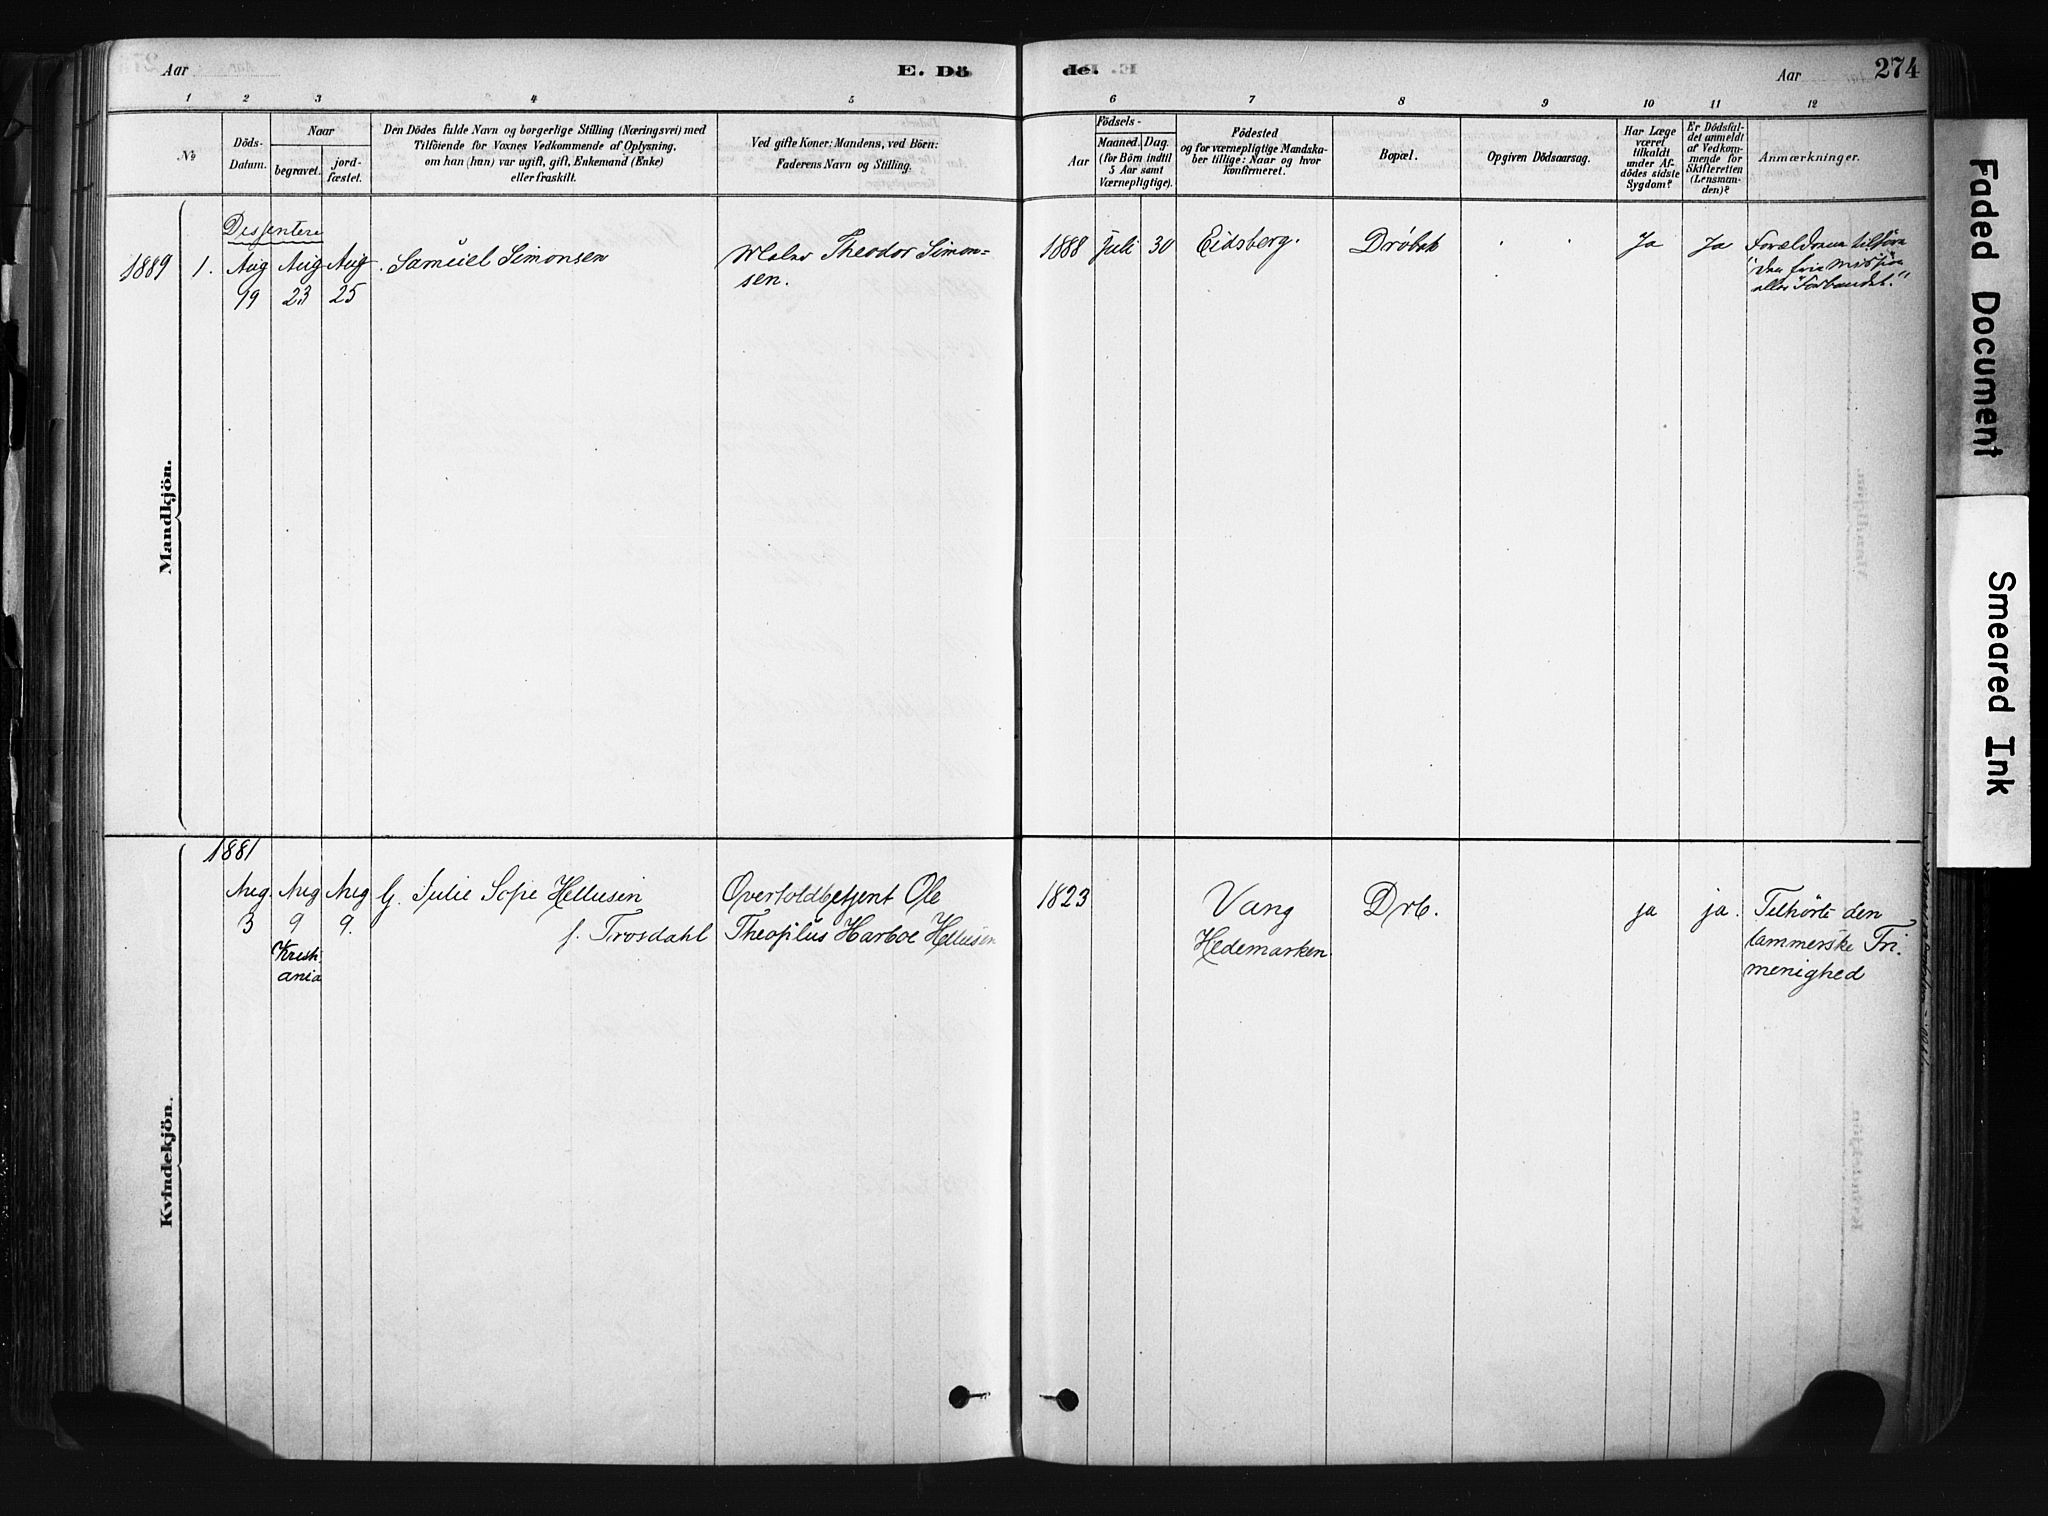 Aar
E. Dö
de.
Aar
274
1 2 3 4 5 6 7 8 9 10 11 12
No
Döds-
Datum.
Naar
begravet.
jord-
fæstet.
Den Dödes fulde Navn og borgerlige Stilling (Næringsvei) med
Tilföiende for Voxnes Vedkommende af Oplysning,
om han (hun) var ugift, gift, Enkemand (Enke)
eller fraskilt.
Ved gifte Koner: Mandens, ved Börn:
Faderens Navn og Stilling.
Födsels-
Aar
Maaned. Dag.
(for Börn indtil
5 Aar samt
Værnepligtige).
Födested
og for værnepligtige Mandska-
ber tillige: Naar og hvor
konfirmeret.
Bopæl.
Opgiven Dödsaarsag.
Har Læge
været
tilkaldt
under Af-
dödes sidste
Sygdom?
Er Dödsfal-
det anmeldt
af Vedkom-
mende for
Skifteretten
(Lensman-
den)?
Anmærkninger.
Mandkjön.
Dissentere
1889 1. Aug Aug Aug Samuel Simonsen Theodor Simon- 1888 juli 30 Eidsberg. Dröbak Ja Ja Forældrene
19 23 25 sen. "den frie
"Forbundet."
Kvindekjön.
1881
Aug. Aug Aug G. Julie Sofie Hellusen Overtoldbetjent Ole 1823 Vang Drb. ja ja. Tilhörte den
3 9 9. f. Trosdahl Theofilus Harboe Hellusen Hedemarken. Lammerske Fri-
Kristi- menighed
ania
Faded Document
Smeared Ink